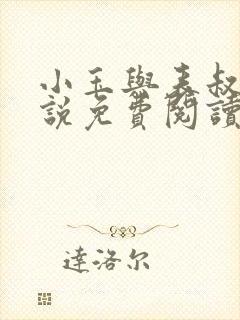 小玉與表叔
說免費閱讀
達洛尔